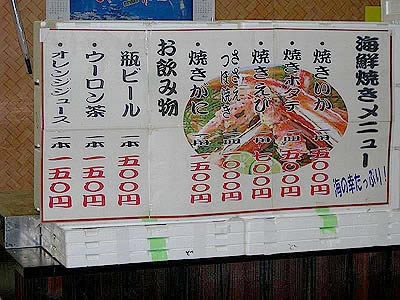 海鮮焼きメニュー
海の幸たっぷり!
・焼きいか 一皿 五〇〇円
・焼きホタテ 一皿 五〇〇円
・焼きえび 一皿 七〇〇円
・さざえ
つぼ焼き 一皿 〇〇円
・焼きかに 一皿 一五〇〇円
お飲み物
・瓶ビール 一本 五〇〇円
・ウーロン茶 一本 一五〇円
・オレンジジュース 一本 一五〇円